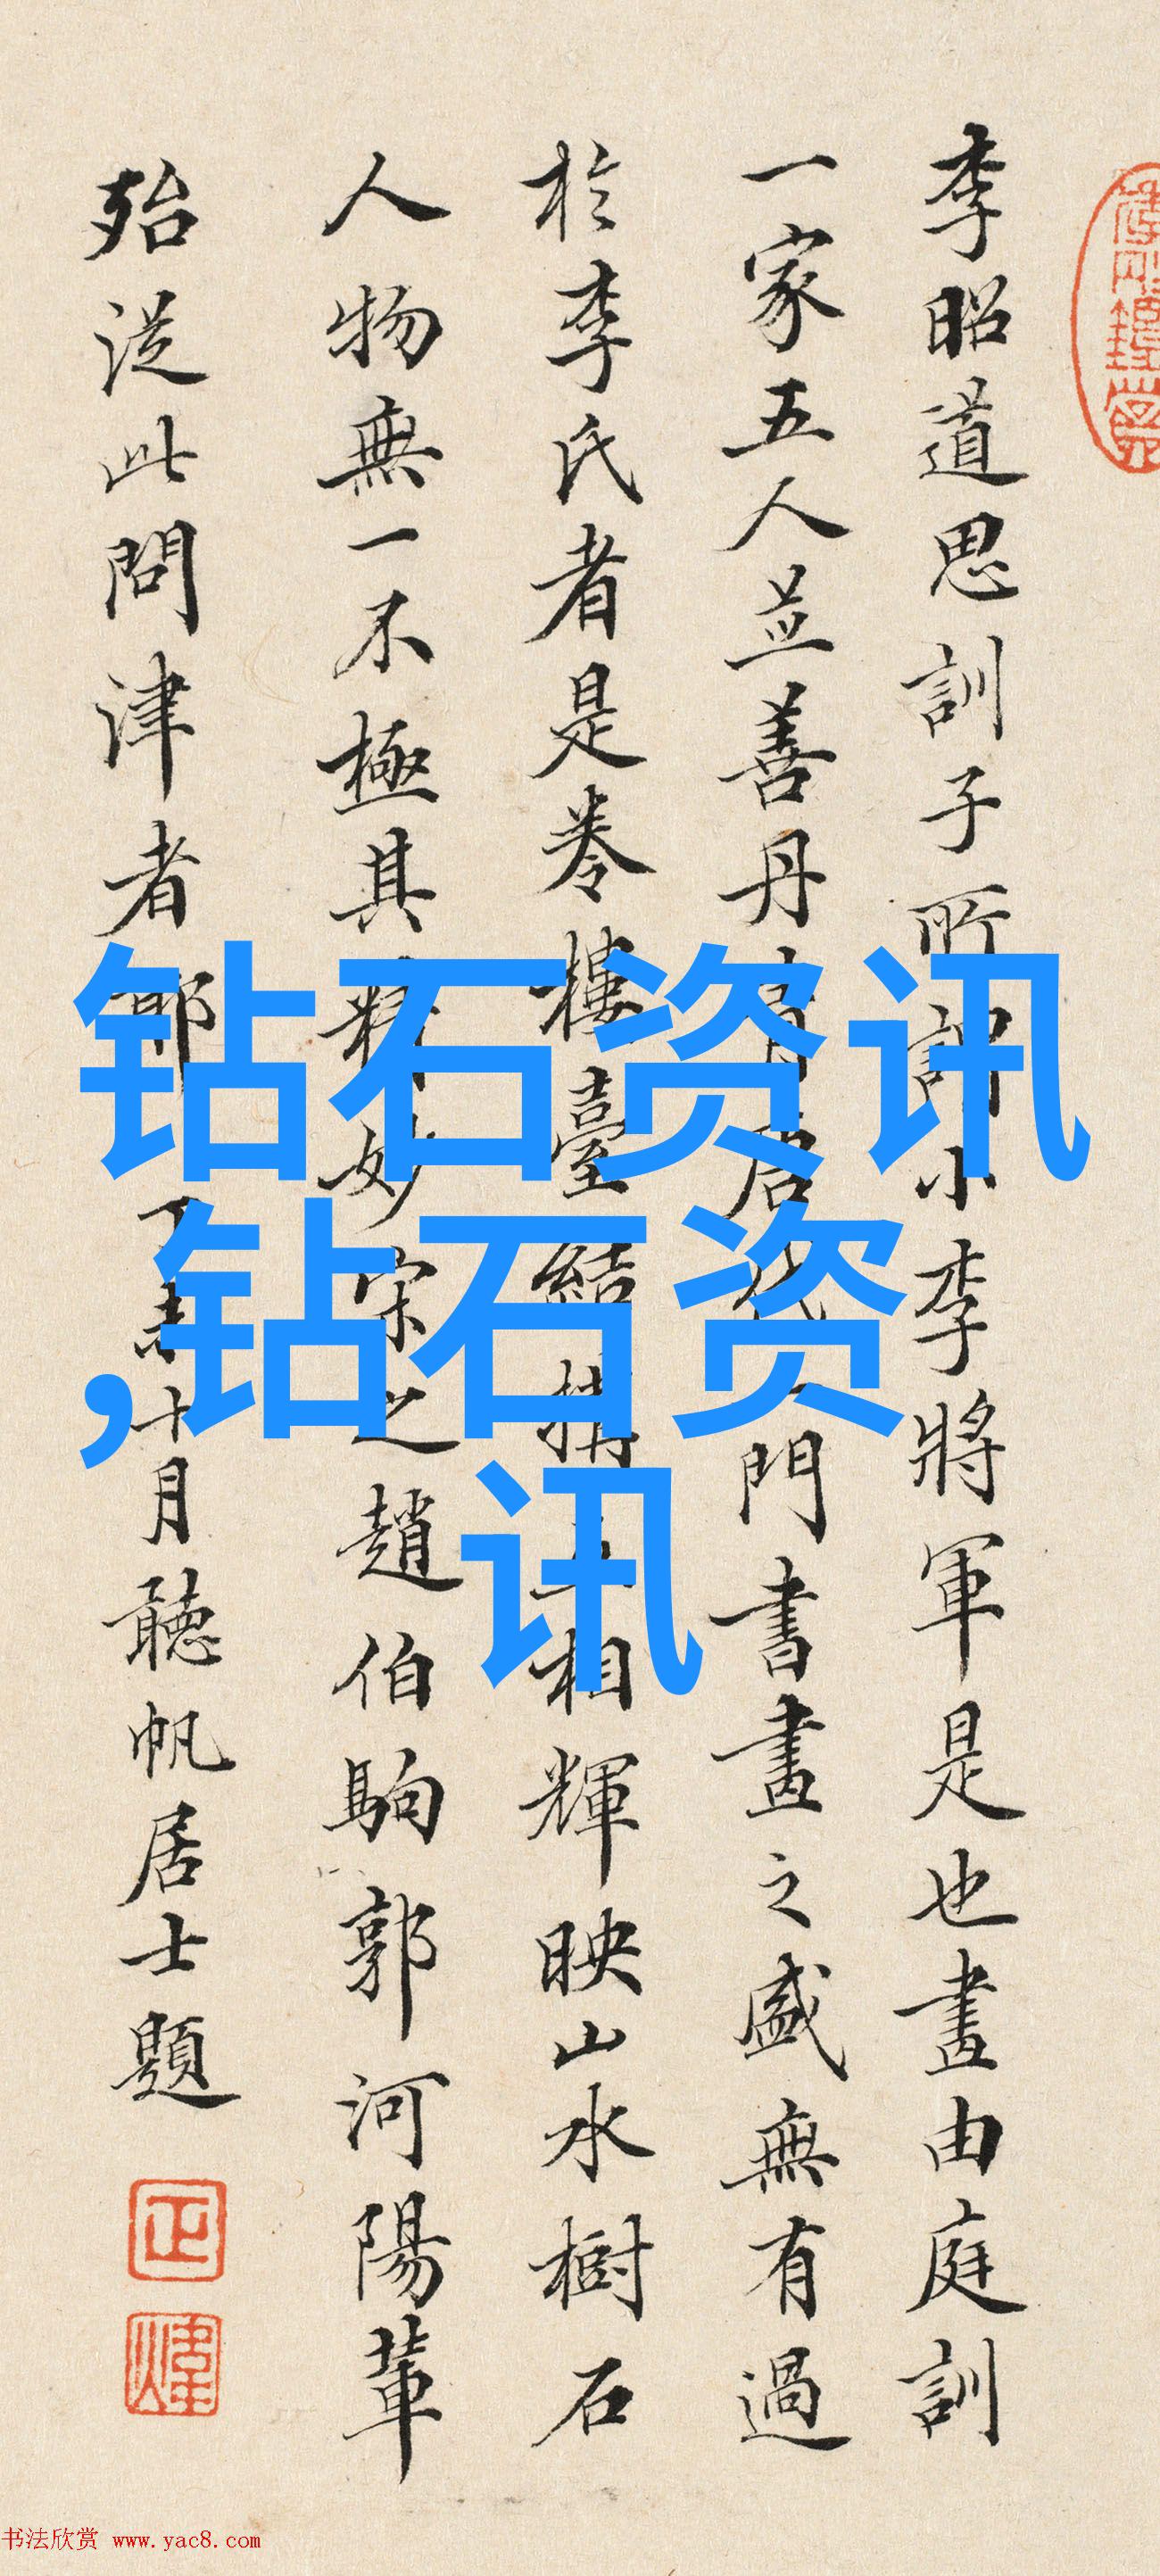 李昭道思訓子所謂小李將軍是也畫由庭訓
一家五人並善丹青唐代一門書畫之盛無有過
於李氏者是卷樓臺結構互相輝映山水樹石
人物無一不極其精妙宋之趙伯駒郭河陽輩
殆從此問津者耶 丁未十月聽帆居士題
正
煒
钻石资讯
,钻石资
讯
书法欣赏 www.yac8.com